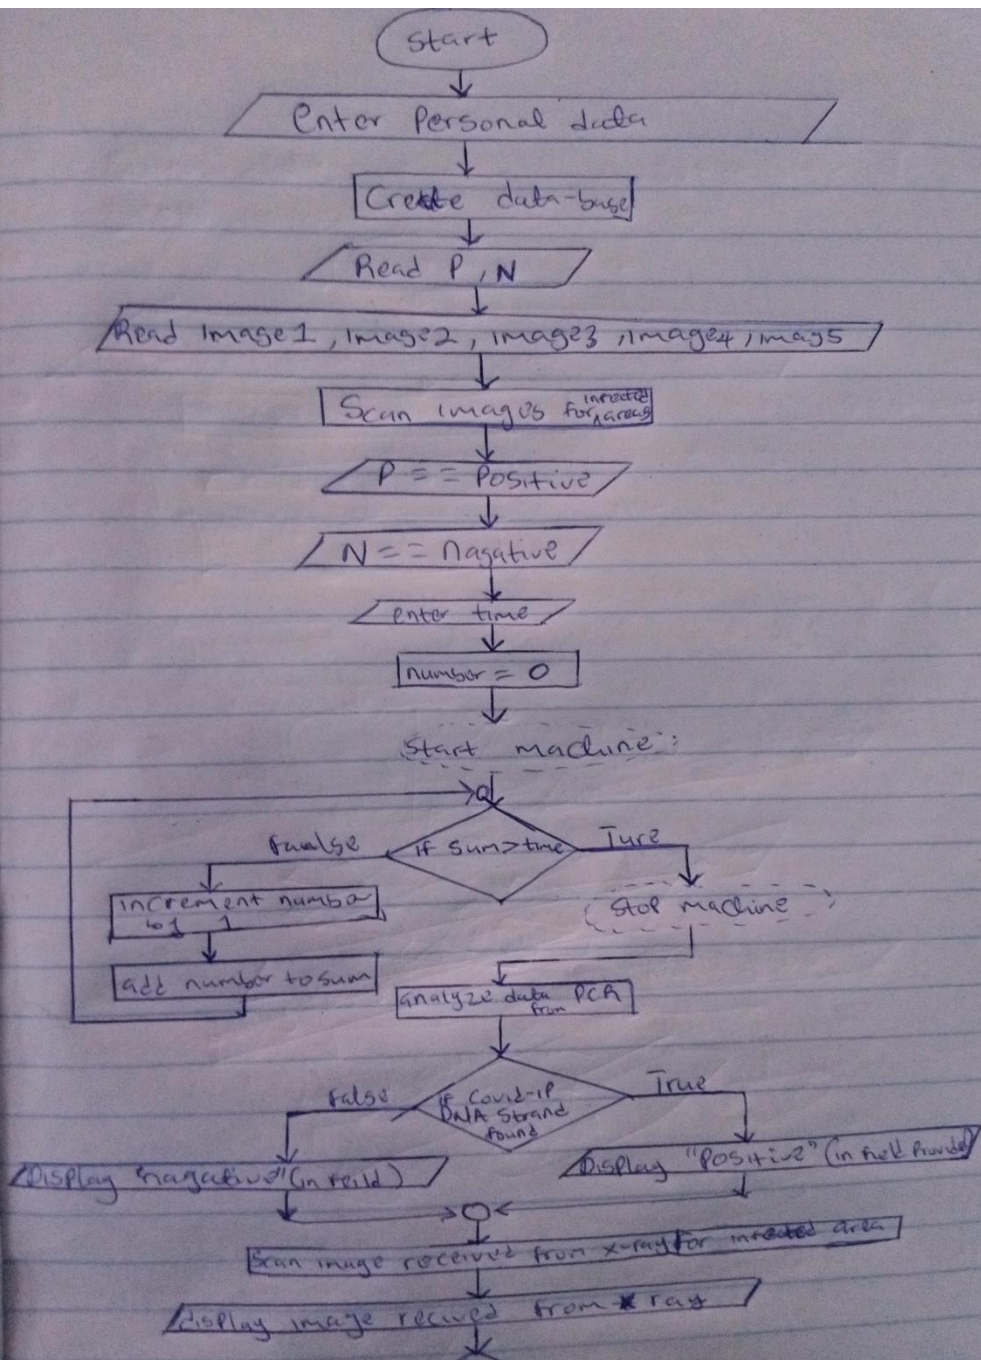 Start
Enter Personal data
Create data-base
Read P, N
Read image1, image2, image3, image4, imag5
infected
Scan images for areas
P == Positive
N == nagative
enter time
number = 0
Start machine
if sum>time
faalse
Ture
increment number
by 1
add number to sum
Stop machine
analyze data from PCR
if Covid-19
DNA Strand
found
false
True
Display "nagative" (in feild)
Display "Positive" (in field Provided)
Scan image received from x-ray for infected area
display image recived from x ray